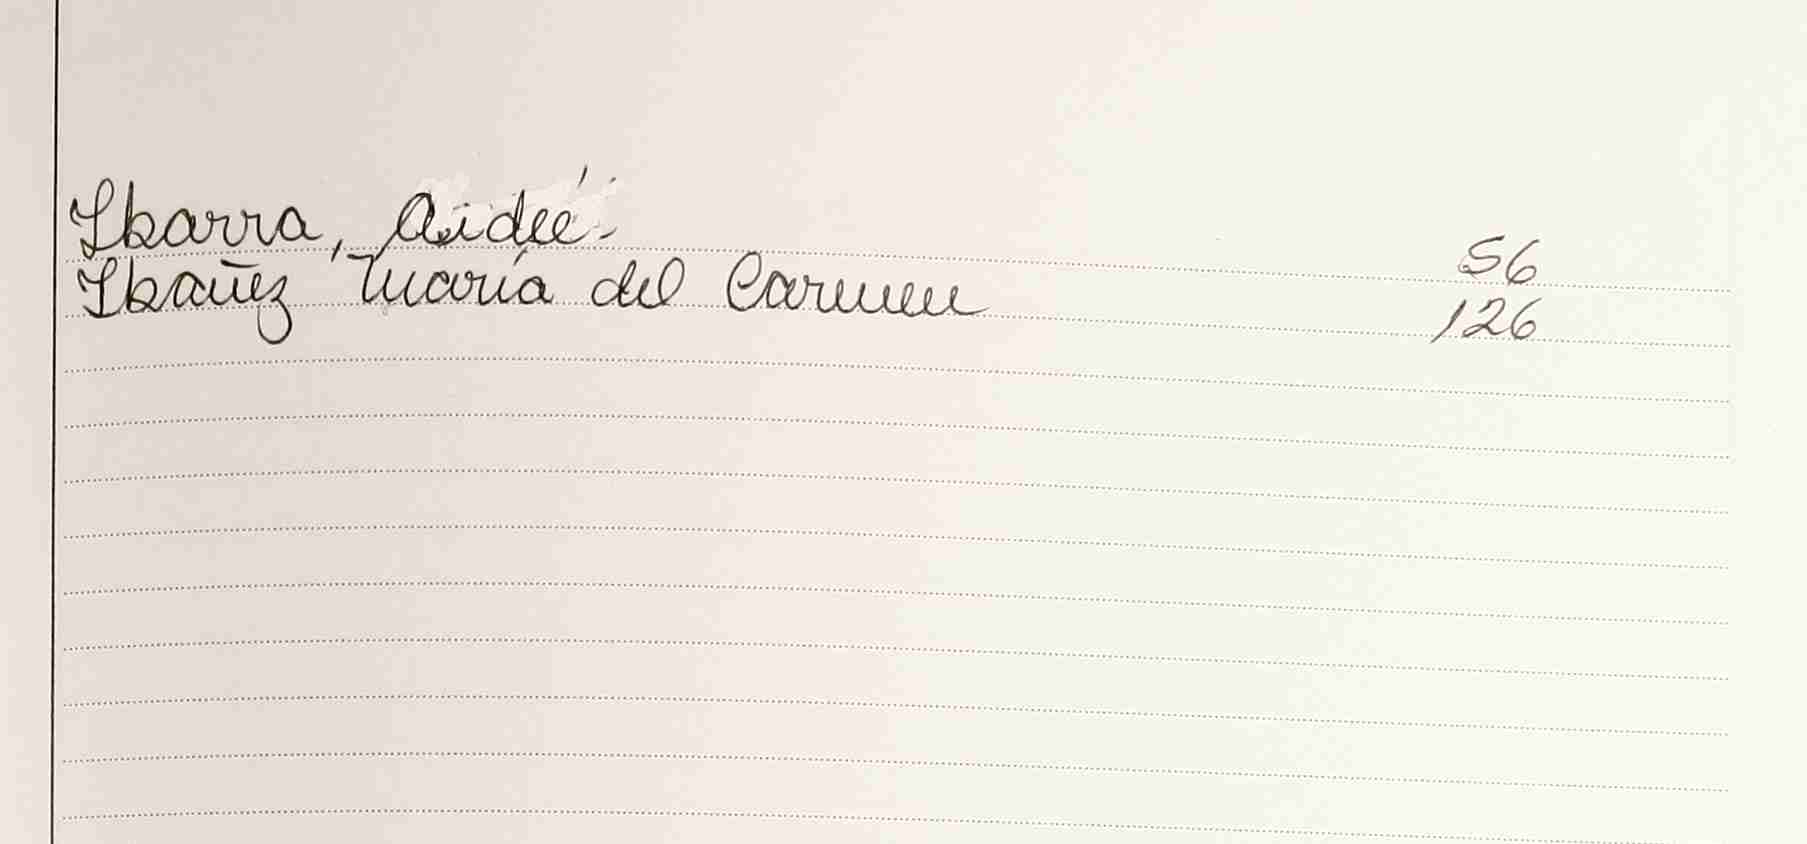 Ibarra, Aideé.- 56
Ibañez María del Carmen 126